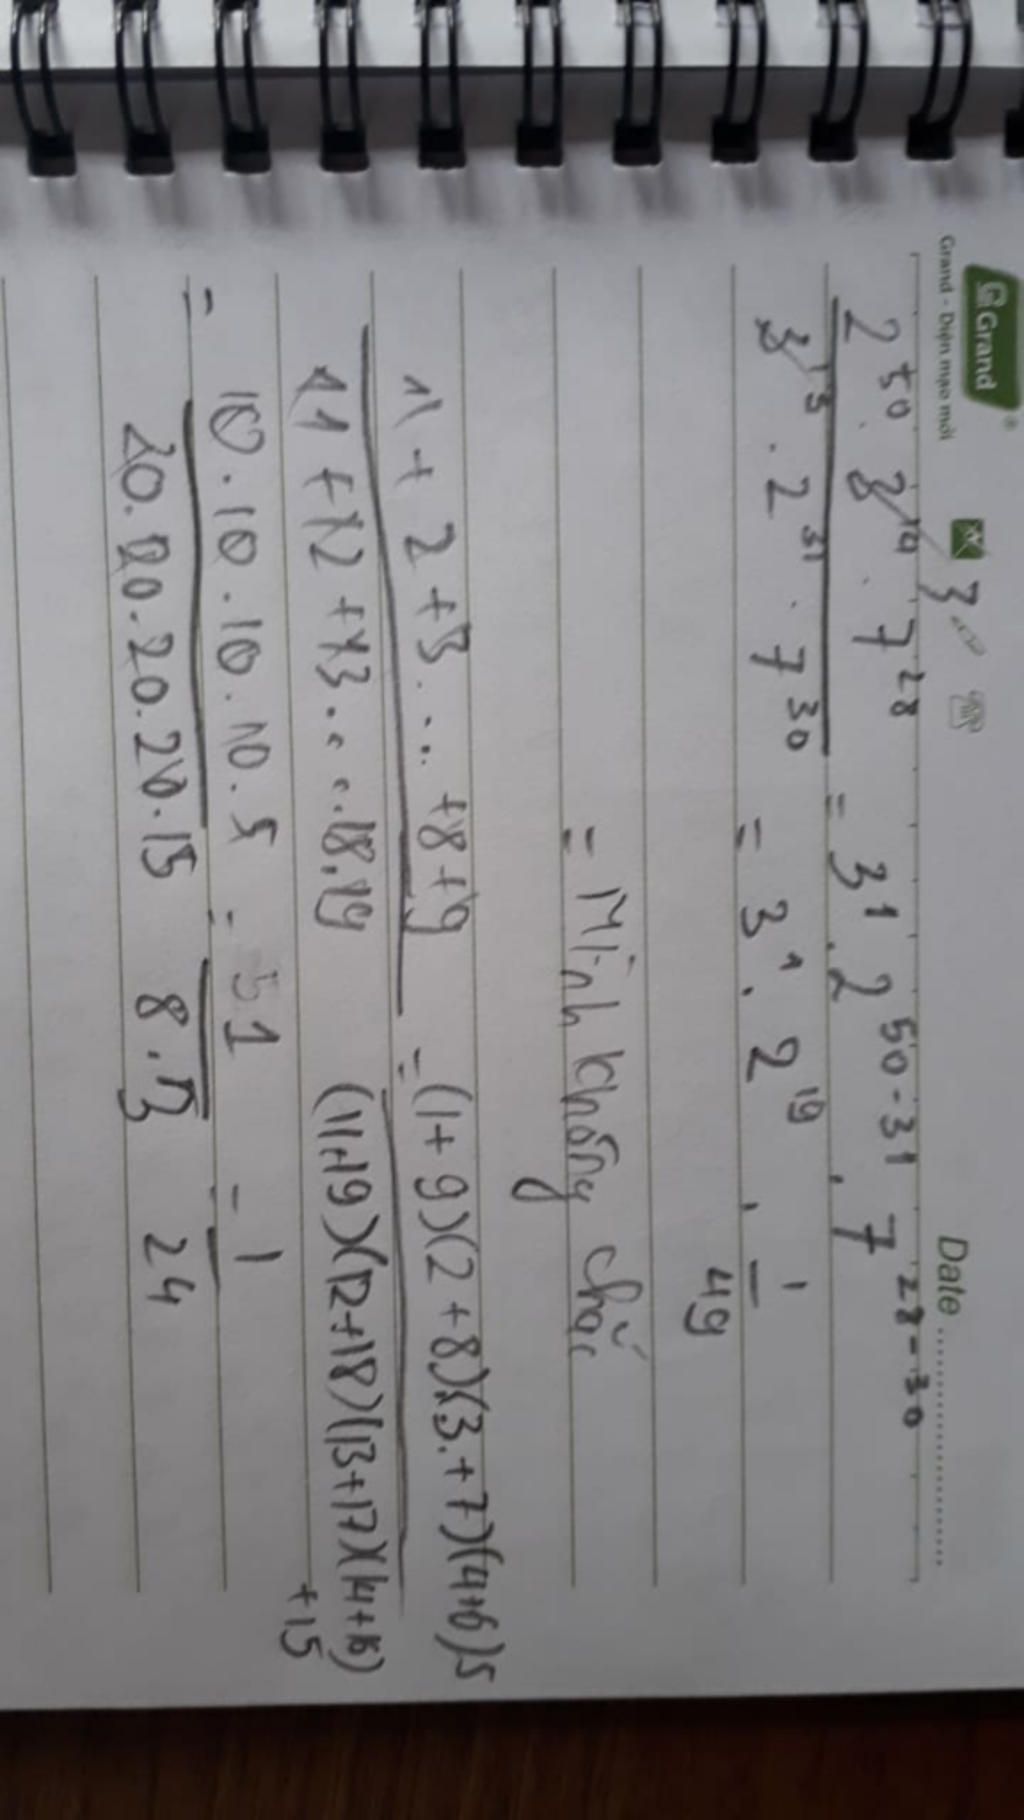 Grand
Grand - Diện mạo mới
Date
3
2^50 . 3^14 . 7^28 / 3^13 . 2^31 . 7^30 = 3^1 . 2^50-31 . 7^28-30
= 3^1 . 2^19 . 1/49
= Mình không chắc
1 + 2 + 3 . ... +8 + 9 / 11 + 12 + 13 . . . . 18 . 19 = (1+9)(2+8)(3+7)(4+6)5 / (11+19)(12+18)(13+17)(14+16) +15
= 10 . 10 . 10 . 10 . 5 / 20 . 20 . 20 . 20 . 15 = 1 / 8 . 3 = 1 / 24